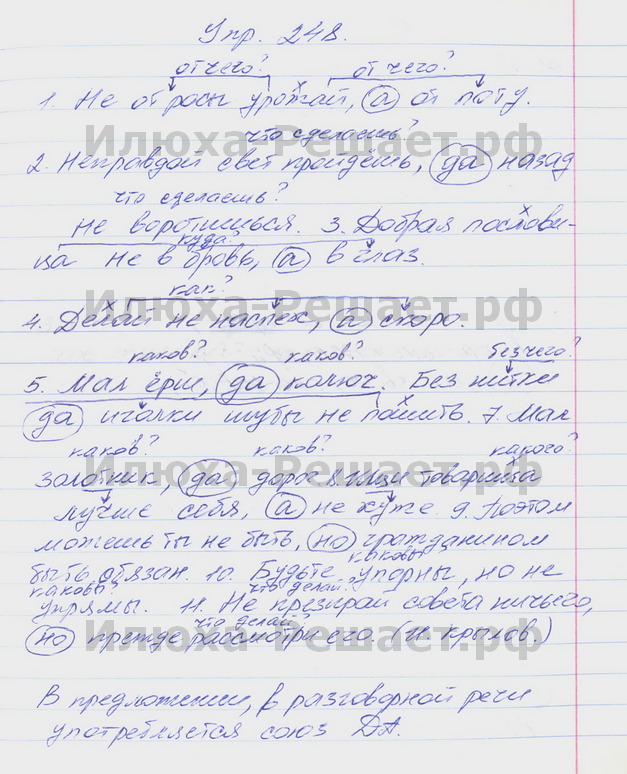 Упр. 248.
от чего? от чего?
1. Не от росы урожай, а от поту.
что сделаешь?
2. Неправдой свет пройдёшь, да назад
что сделаешь?
не воротишься. 3. Добрая послови-
куда?
ца не в бровь, а в глаз.
как?
4. Делай не наспех, а скоро.
каков? каков? без чего?
5. Мал ёрш, да колюч. Без нитки
да иголки шубы не пошить. 7. Мал
каков? каков? какого?
золотник, да дорог. 8. Ищи товарища
лучше себя, а не хуже. 9. Поэтом
можешь ты не быть, но гражданином
каковы?
быть обязан. 10. Будьте упорны, но не
каковы? что делай?
упрямы. 11. Не презирай совета ничьего,
что делай?
но прежде рассмотри его. (И. Крылов.)
В предложении, в разговорной речи
употребляется союз ДА.
Илюха-Решает.рф
Илюха-Решает.рф
Илюха-Решает.рф
Илюха-Решает.рф